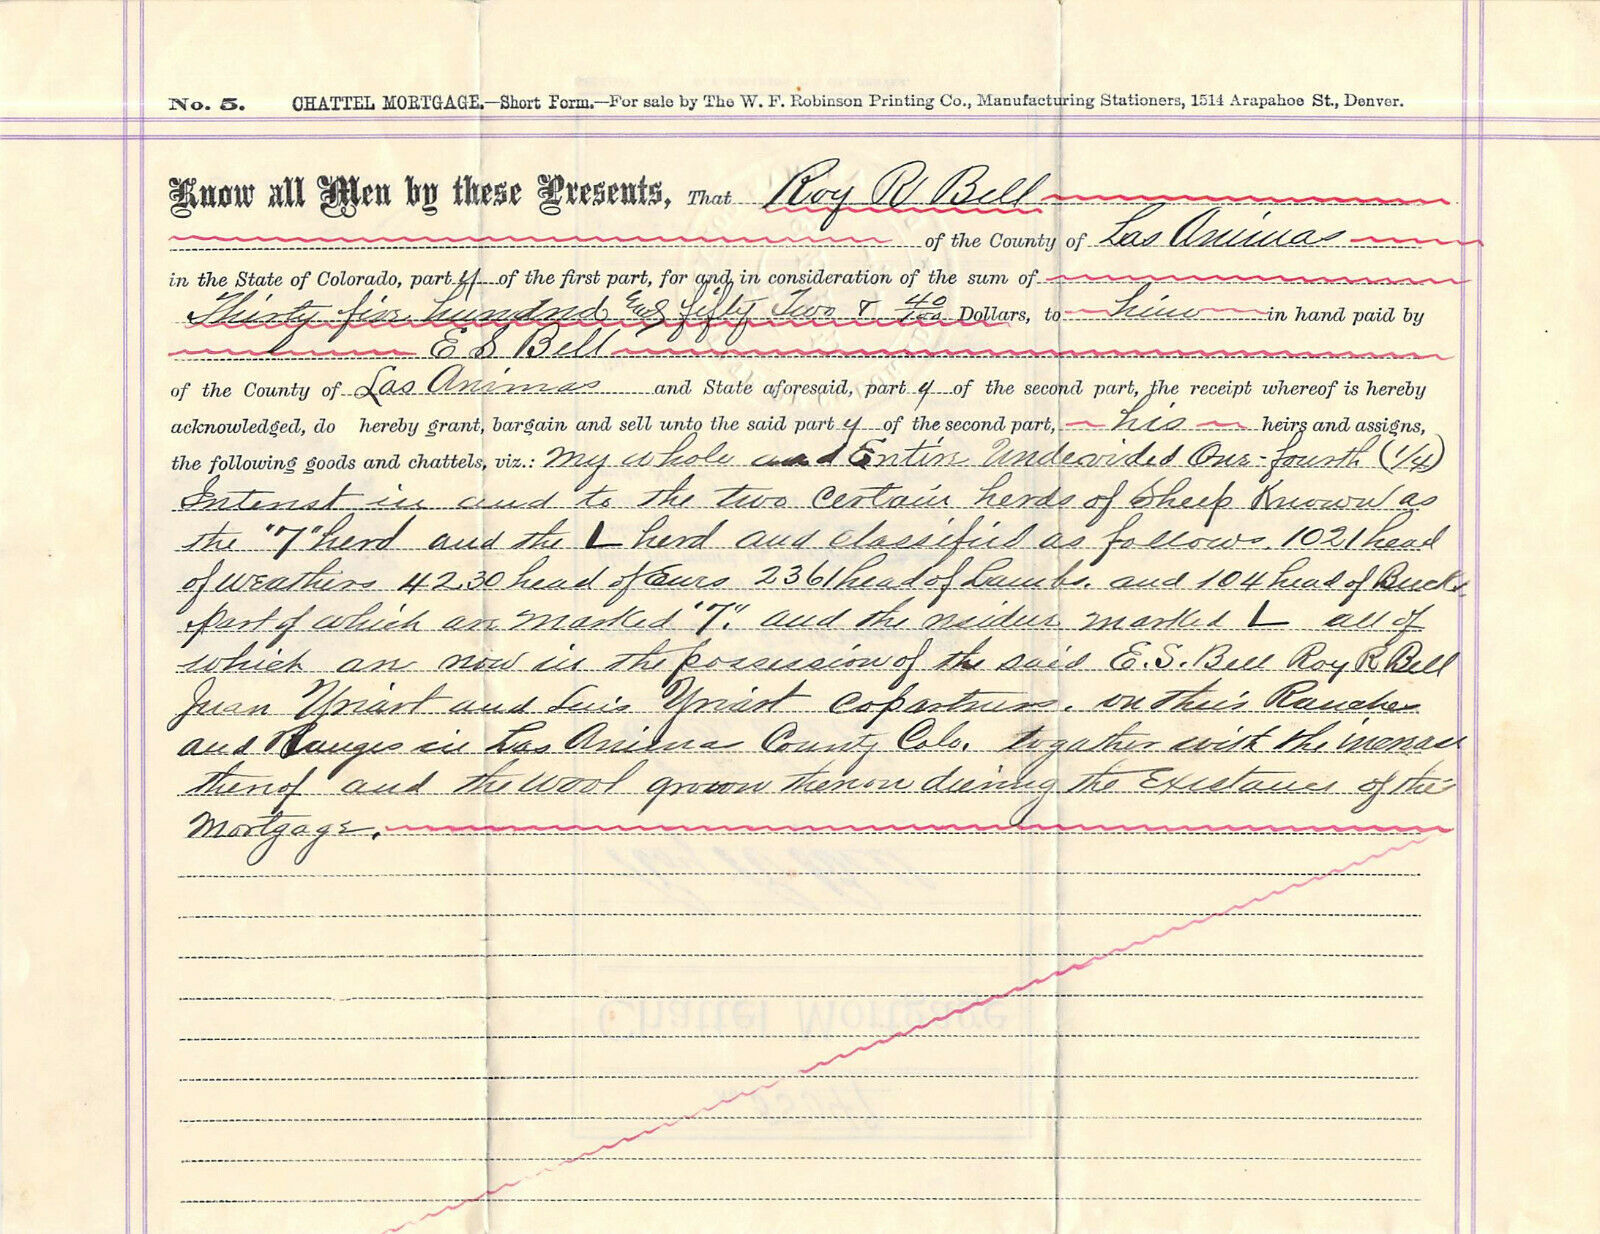 No. 5. CHATTEL MORTGAGE.—Short Form.—For sale by The W. F. Robinson Printing Co., Manufacturing Stationers, 1514 Arapahoe St., Denver.
Know all Men by these Presents, That Roy R Bell
of the County of Las Animas
in the State of Colorado, party of the first part, for and in consideration of the sum of
Thirty five hundred and fifty Two & 40/100 Dollars, to him in hand paid by
E S Bell
of the County of Las Animas and State aforesaid, party of the second part, the receipt whereof is hereby
acknowledged, do hereby grant, bargain and sell unto the said party of the second part, his heirs and assigns,
the following goods and chattels, viz.: My whole and Entire Undevided One-fourth (1/4)
Interest in and to the two certain herds of Sheep Known as
the "7" herd and the L herd and classified as follows. 1021 head
of Weathers 4230 head of Ewes 2361 head of Lambs. and 104 head of Bucks,
part of which are marked "7". and the residue marked L all of
which are now in the possession of the said E.S. Bell Roy R Bell
Juan Yriart and Luis Yriart copartners. on their Ranches
and Ranges in Las Animas County Colo. together with the increase
thereof and the wool grown thereon during the Existance of this
Mortgage.
Chattel Mortgage